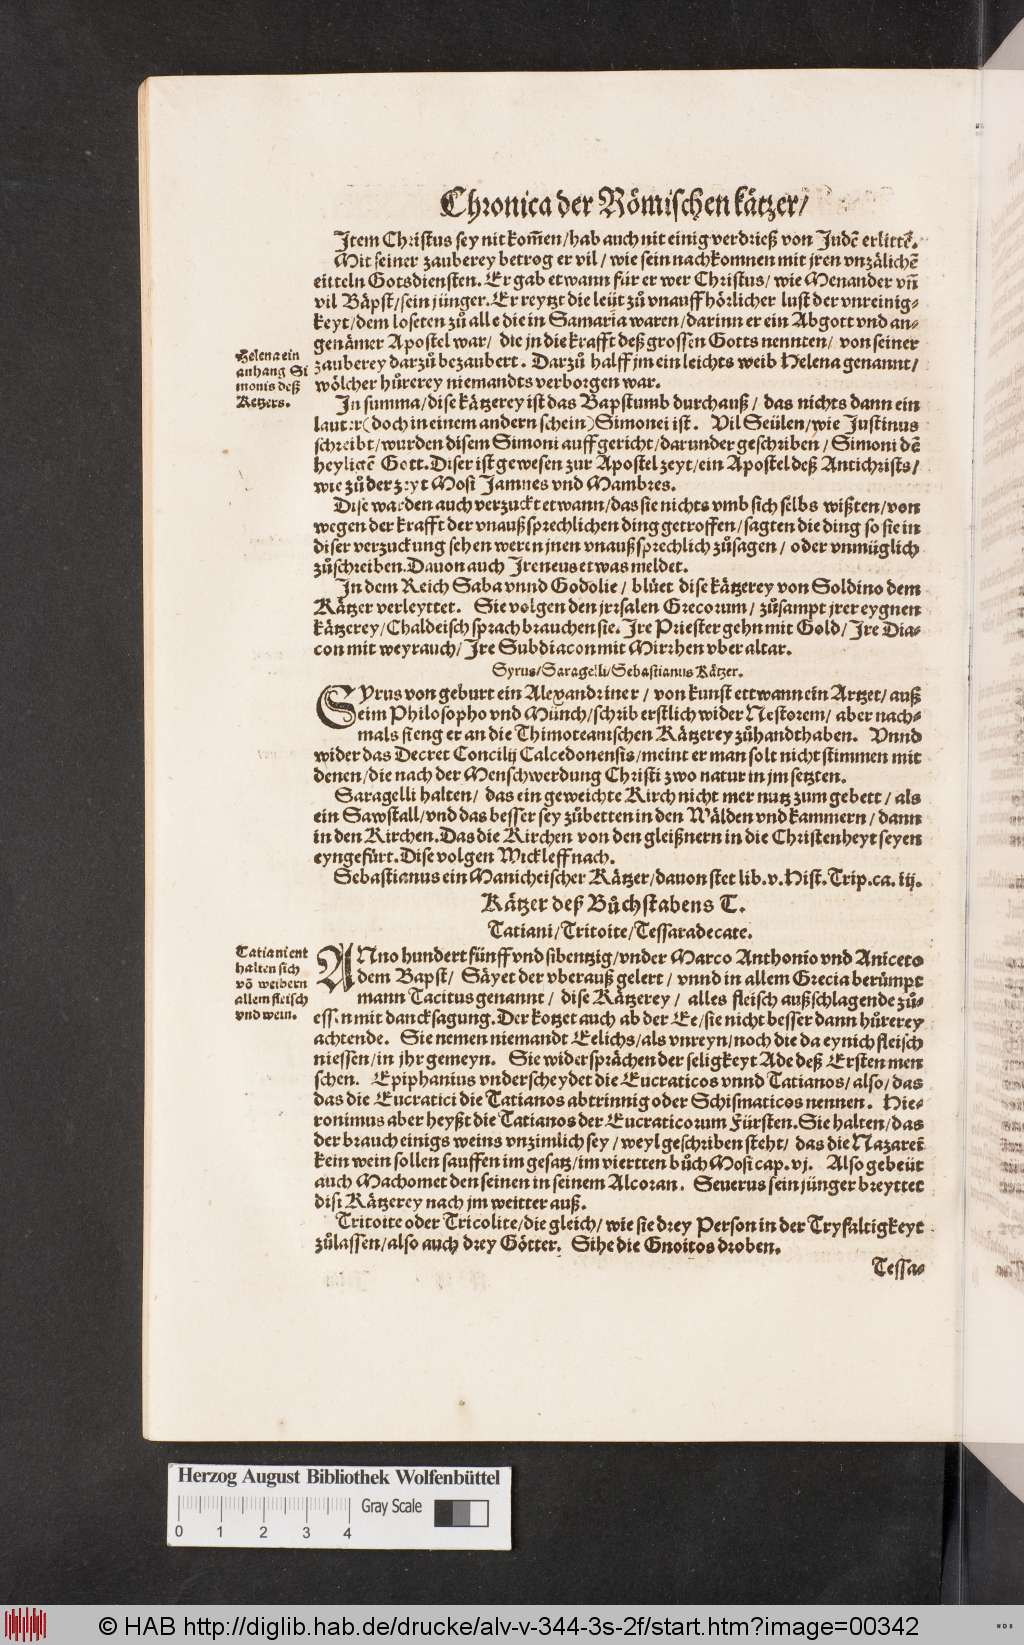 Chronica der Römischen kätzer/
Item Christus sey nit kom̃en/hab auch nit einig verdrieß von Judē erlittē.
Mit seiner zauberey betrog er vil/ wie sein nachkomnen mit jren vnzälichē
eitteln Gotsdiensten. Er gab etwann für er wer Christus/ wie Menander vñ
vil Bäpst/sein jünger. Er reytzt die leüt zů vnauffhörlicher lust der vnreinig-
keyt/dem loseten zů alle die in Samaria waren/darinn er ein Abgott vnd an-
genämer Apostel war/ die jn die krafft deß grossen Gotts nennten/ von seiner
zauberey darzů bezaubert. Darzů halff jm ein leichts weib Helena genannt/
wölcher hůrerey niemandts verborgen war.
Helena ein
anhang Si
monis deß
Ketzers.
In summa/dise kätzerey ist das Bapstumb durchauß/ das nichts dann ein
lauter(doch in einem andern schein)Simonei ist. Vil Seülen/wie Justinus
schreibt/wurden disem Simoni auffgericht/darunder geschriben/Simoni dē
heyligē Gott. Diser ist gewesen zur Apostel zeyt/ein Apostel deß Antichrists/
wie zů der zeyt Mosi Jamnes vnd Mambres.
Dise warden auch verzuckt etwann/das sie nichts vmb sich selbs wißten/von
wegen der krafft der vnaußsprechlichen ding getroffen/sagten die ding so sie in
diser verzuckung sehen weren jnen vnaußsprechlich zůsagen/ oder vnmüglich
zůschreiben. Dauon auch Ireneus etwas meldet.
In dem Reich Saba vnnd Godolie/ blüet dise kätzerey von Soldino dem
Kätzer verleyttet. Sie volgen den jrrsalen Grecorum/ zůsampt jrer eygnen
kätzerey/Chaldeisch sprach brauchen sie. Ire Priester gehn mit Gold/Ire Dia-
con mit weyrauch/Ire Subdiacon mit Mirrhen vber altar.
Syrus/Saragelli/Sebastianus Kätzer.
Syrus von geburt ein Alexandriner/ von kunst ettwann ein Artzet/ auß
eim Philosopho vnd Münch/schrib erstlich wider Nestorem/ aber nach-
mals fieng er an die Thimoteanischen Kätzerey zůhandthaben. Vnnd
wider das Decret Concilij Calcedonensis/meint er man solt nicht stimmen mit
denen/die nach der Menschwerdung Christi zwo natur in jm setzten.
Saragelli halten/ das ein geweichte Kirch nicht mer nutz zum gebett/ als
ein Sawstall/vnd das besser sey zůbetten in den Wälden vnd kammern/ dann
in den Kirchen. Das die Kirchen von den gleißnern in die Christenheyt seyen
eyngefürt. Dise volgen Wickleff nach.
Sebastianus ein Manicheischer Kätzer/dauon stet lib.v.Hist.Trip.ca.iij.
Kätzer deß Bůchstabens T.
Tatiani/Tritoite/Tessaradecate.
Tatiani ent
halten sich
võ weibern
allem fleisch
vnd wein.
ANno hundert fünff vnd sibentzig/vnder Marco Anthonio vnd Aniceto
dem Bapst/ Säyet der vberauß gelert/ vnnd in allem Grecia berümpt
mann Tacitus genannt/ dise Kätzerey/ alles fleisch außschlagende zů-
essen mit dancksagung. Der kotzet auch ab der Ee/sie nicht besser dann hůrerey
achtende. Sie nemen niemandt Eelichs/als vnreyn/noch die da eynich fleisch
niessen/in jhr gemeyn. Sie widersprächen der seligkeyt Ade deß Ersten men
schen. Epiphanius vnderscheydet die Eucraticos vnnd Tatianos/also/das
das die Eucratici die Tatianos abtrinnig oder Schismaticos nennen. Hie-
ronimus aber heyßt die Tatianos der Eucraticorum Fürsten. Sie halten/das
der brauch einigs weins vnzimlich sey/weyl geschriben steht/ das die Nazarei
kein wein sollen sauffen im gesatz/im viertten bůch Mosi cap.vj. Also gebeüt
auch Machomet den seinen in seinem Alcoran. Seuerus sein jünger breyttet
disi Kätzerey nach jm weitter auß.
Tritoite oder Tricolite/die gleich/ wie sie drey Person in der Tryfaltigkeyt
zůlassen/also auch drey Götter. Sihe die Gnoitos droben.
Tessa-
Herzog August Bibliothek Wolfenbüttel
Gray Scale
0 1 2 3 4
© HAB http://diglib.hab.de/drucke/alv-v-344-3s-2f/start.htm?image=00342